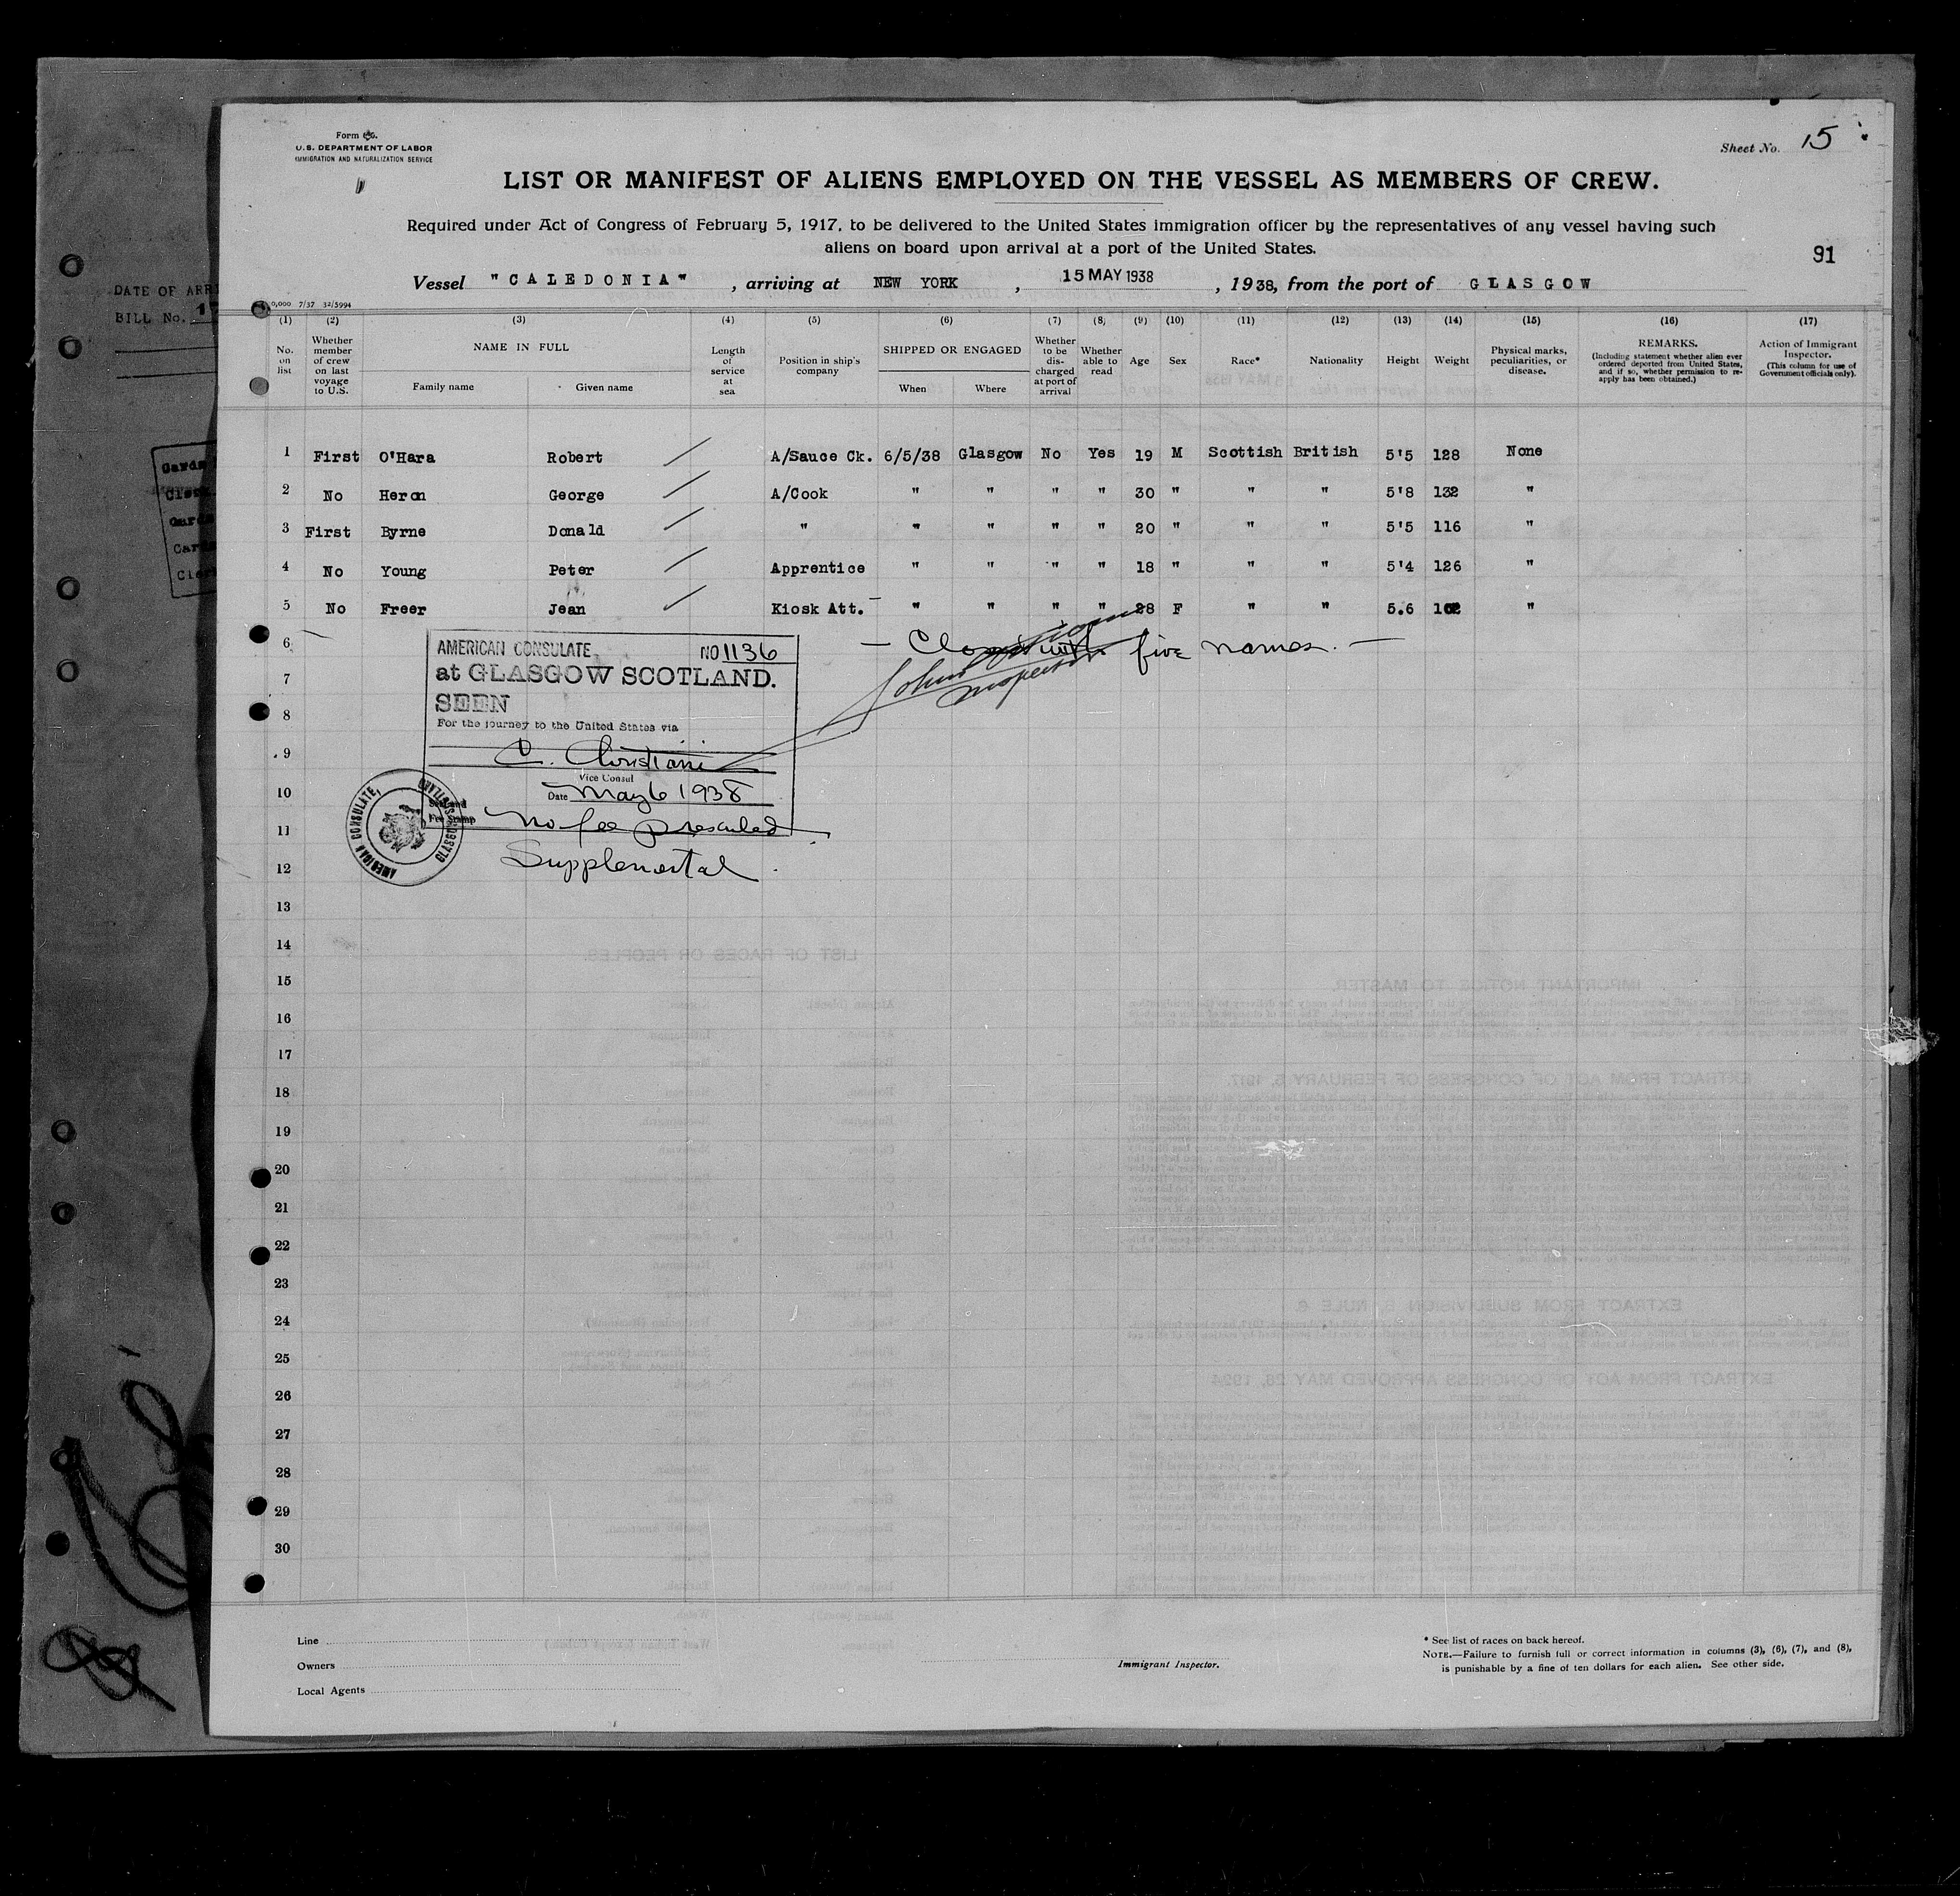 Form
U.S. DEPARTMENT OF LABOR
IMMIGRATION AND NATURALIZATION SERVICE
Sheet No. 15
LIST OR MANIFEST OF ALIENS EMPLOYED ON THE VESSEL AS MEMBERS OF CREW.
Required under Act of Congress of February 5, 1917, to be delivered to the United States immigration officer by the representatives of any vessel having such
aliens on board upon arrival at a port of the United States.
91
Vessel "CALEDONIA", arriving at NEW YORK, 15 MAY 1938, 1938, from the port of GLASGOW
DATE OF
BILL No.
7/37 32/5994
(1) (2) (3) (4) (5) (6) (7) (8) (9) (10) (11) (12) (13) (14) (15) (16) (17)
No. on list
Whether member of crew on last voyage to U.S.
NAME IN FULL
Family name
Given name
Length of service at sea
Position in ship's company
SHIPPED OR ENGAGED
When
Where
Whether to be discharged at port of arrival
Whether able to read
Age
Sex
Race*
Nationality
Height
Weight
Physical marks, peculiarities, or disease.
REMARKS.
(Including statement whether alien ever ordered deported from United States, and if so, whether permission to reapply has been obtained.)
Action of Immigrant Inspector.
(This column for use of Government officials only).
1 First O'Hara Robert A/Sauce Ck. 6/5/38 Glasgow No Yes 19 M Scottish British 5'5 128 None
2 No Heron George A/Cook " " " " 30 " " " 5'8 132 "
3 First Byrne Donald " " " " " 20 " " " 5'5 116 "
4 No Young Peter Apprentice " " " " 18 " " " 5'4 126 "
5 No Freer Jean Kiosk Att. " " " " 28 F " " 5.6 102 "
6
— Closed with five names. —
John
Inspector
AMERICAN CONSULATE
NO 1136
at GLASGOW SCOTLAND.
SEEN
For the journey to the United States via
C. Christiani
Vice Consul
Date May 6 1938
Fee Stamp
No fee prescribed
Supplemental
AMERICAN CONSULATE, GLASGOW, SCOTLAND
7
8
9
10
11
12
13
14
15
16
17
18
19
20
21
22
23
24
25
26
27
28
29
30
Line
Owners
Local Agents
Immigrant Inspector.
* See list of races on back hereof.
NOTE.—Failure to furnish full or correct information in columns (3), (6), (7), and (8),
is punishable by a fine of ten dollars for each alien. See other side.